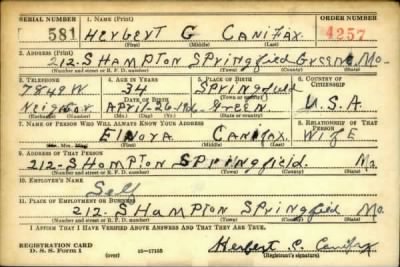 SERIAL NUMBER 1. NAME (Print) ORDER NUMBER
581 Herbert G Canifax 4257
(First) (Middle) (Last)
2. ADDRESS (Print)
212-S HAMPTON SPringfield Greene Mo.
(Number and street or R. F. D. number) (Town) (County) (State)
3. TELEPHONE 4. AGE IN YEARS 5. PLACE OF BIRTH 6. COUNTRY OF CITIZENSHIP
7849W 34 SPringfield
DATE OF BIRTH (Town or county)
Neighbor APril-26- Green U.S.A.
(Exchange) (Number) (Mo.) (Day) (Yr.) (State or country)
7. NAME OF PERSON WHO WILL ALWAYS KNOW YOUR ADDRESS 8. RELATIONSHIP OF THAT PERSON
Elnora Canifax. WIFE
(Mr., Mrs., Miss) (First) (Middle) (Last)
9. ADDRESS OF THAT PERSON
212-S HamPton SPringfield. Mo.
(Number and street or R. F. D. number) (Town) (County) (State)
10. EMPLOYER'S NAME
Self
11. PLACE OF EMPLOYMENT OR BUSINESS
212. S HamPton SPringfield Mo.
(Number and street or R. F. D. number) (Town) (County) (State)
I AFFIRM THAT I HAVE VERIFIED ABOVE ANSWERS AND THAT THEY ARE TRUE.
REGISTRATION CARD
D. S. S. Form 1 (over) 16—17105 Herbert G. Canifax
(Registrant's signature)